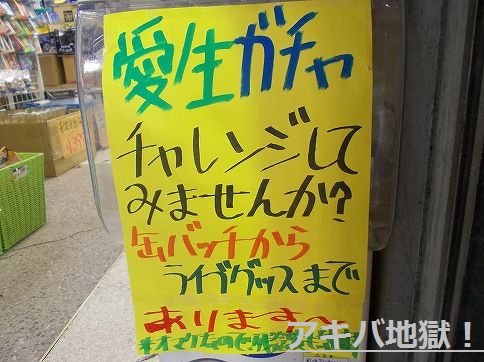 愛生ガチャ
チャレンジして
みませんか?
缶バッチから
ライブグッズまで
あります〜
アキバ地獄!